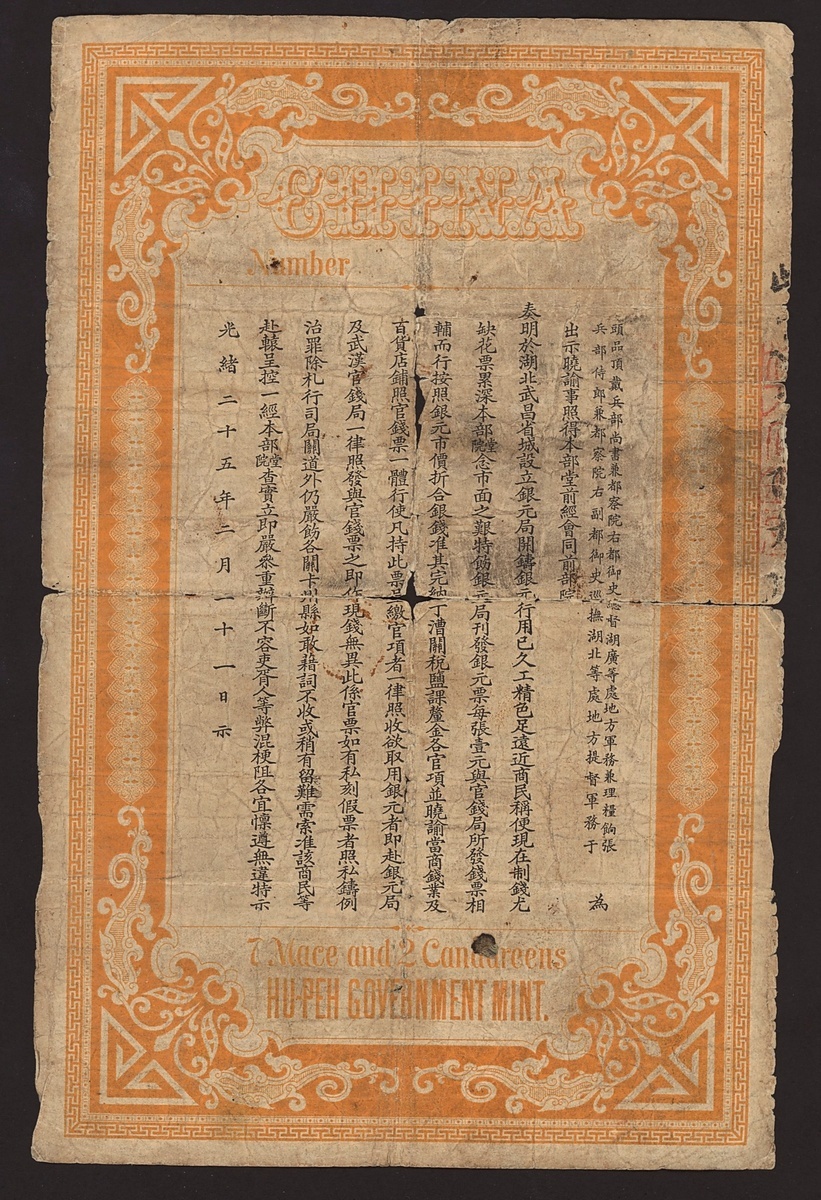 CHINA
Number
頭品頂戴兵部尚書兼都察院右都御史總督湖廣等處地方軍務兼理糧餉張
兵部侍郎兼都察院右副都御史巡撫湖北等處地方提督軍務于
為
出示曉諭事照得本部堂前經會同前部院
奏明於湖北武昌省城設立銀元局開鑄銀元行用已久工精色足遠近商民稱便現在制錢尤
缺花票累深本部堂院念市面之艱特飭銀元局刊發銀元票每張壹元與官錢局所發錢票相
輔而行按照銀元市價折合銀錢准其完納丁漕關稅鹽課釐金各官項並曉諭當商錢業及
百貨店鋪照官錢票一體行使凡持此票呈繳官項者一律照收欲取用銀元者即赴銀元局
及武漢官錢局一律照發與官錢票之即作現錢無異此係官票如有私刻假票者照私鑄例
治罪除札行司局關道外仍嚴飭各關卡州縣如敢藉詞不收或稍有留難需索准該商民等
赴轅呈控一經本部堂院查實立即嚴叅重辦斷不容吏胥人等弊混梗阻各宜懍遵無違特示
光緒二十五年二月二十一日示
7 Mace and 2 Candareens
HU-PEH GOVERNMENT MINT.